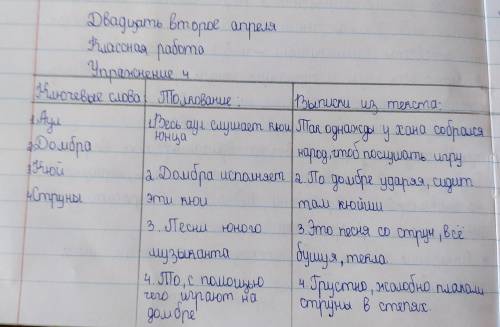 Двадцать второе апреля
Классная работа
Упражнение 4
Ключевые слова: Толкование: Выписки из текста:
1. Аул
2. Домбра
3. Кюй
4. Струны
1. Весь аул слушает кюи
юнца
2. Домбра исполняет
эти кюи
3. Песни юного
музыканта
4. То, с помощью
чего играют на
домбре
Так однажды у хана собрался
народ, чтоб послушать игру
2. По домбре ударяя, сидит
там кюйши
3. Это песня со струн, всё
бушуя, текла.
4. Грустно, жалобно плакали
струны в степях.